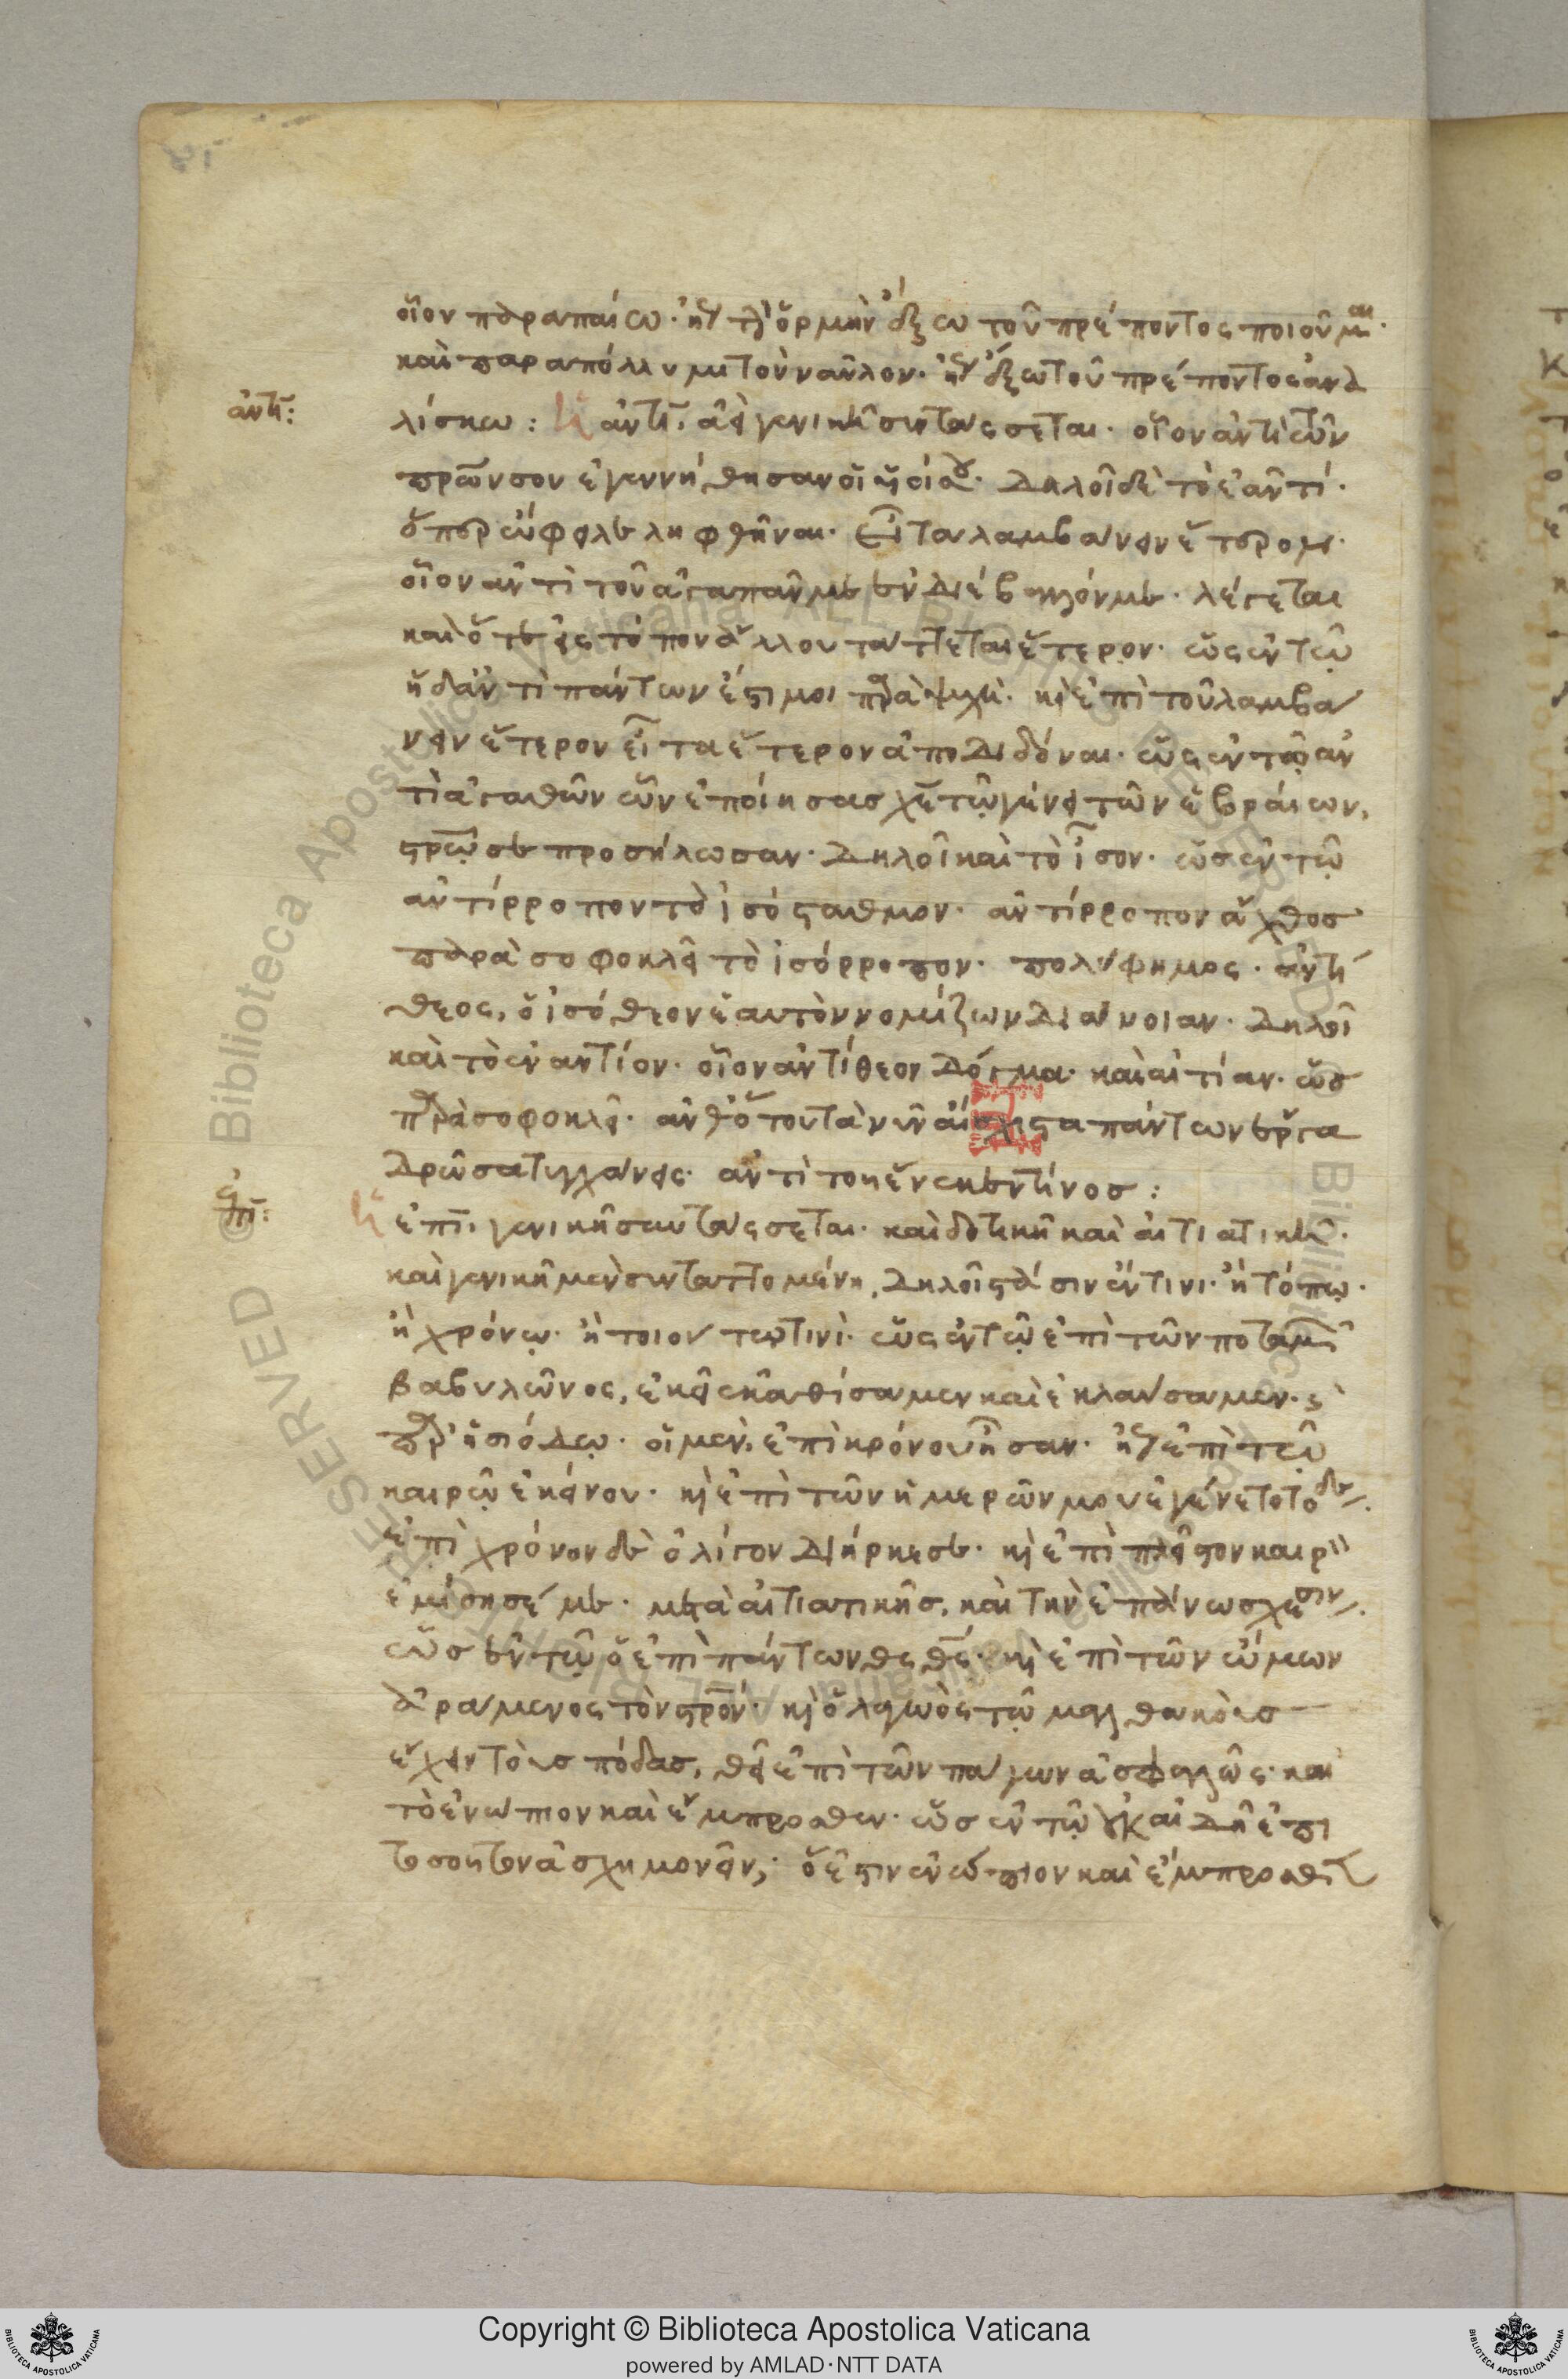 οἷον παραπαίω· ἤγουν τὴν ὁρμὴν ἔξω τοῦ πρέποντος ποιοῦμαι·
καὶ παραπόλλυμι τὸν ναῦλον· ἤγουν ἔξω τοῦ πρέποντος ἀνα
ἀντὶ:
λίσκω: ἡ ἀντὶ, ἀεὶ γενικῇ συντάσσεται· οἷον ἀντὶ τῶν
πρων σου ἐγεννήθησαν οἱ υἱοί σου· δηλοῖ δὲ τὸ ἀντί·
ὅπερ ὤφειλε ληφθῆναι· εἶτα λαμβάνειν ἕτερόν τι·
οἷον ἀντὶ τοῦ ἀγαπᾶν με ἐνδιέβαλλόν με· λέγεται
καὶ ὅτε εἰς τόπον ἄλλου τάττεται ἕτερον· ὡς ἐν τῷ
ἥδ' ἀντὶ πάντων ἐστί μοι παρὰ ψυχή· καὶ ἐπὶ τοῦ λαμβά
νειν ἕτερον εἶτα ἕτερον ἀποδιδόναι· ὡς ἐν τῷ ἀν
τὶ ἀγαθῶν ὧν ἐποίησας χε τῷ γένει τῶν ἑβραίων,
στρω σε προσήλωσαν· δηλοῖ καὶ τὸ ἴσον· ὡς ἐν τῷ
ἀντίρροπον τὸ ἰσόσταθμον· ἀντίρροπον ἄχθος
παρὰ σοφοκλεῖ τὸ ἰσόρροπον· πολύφημος· ἀντί
θεος, ὁ ἰσόθεον ἑαυτὸν νομίζων διάνοιαν· δηλοῖ
καὶ τὸ ἐναντίον· οἷον ἀντίθεον δόγμα· καὶ αἰτίαν· ὡς
παρὰ σοφοκλεῖ· ἀνθ' ὅτου τὰ νῦν αἴσχιστα πάντων ἔργα
δρῶσα τυγχάνεις· ἀντὶ τοῦ ἕνεκεν τίνος:
ἐπὶ:
ἡ ἐπὶ, γενικῇ συντάσσεται· καὶ δοτικῇ καὶ αἰτιατικῇ·
καὶ γενικῇ μὲν συνταττομένη, δηλοῖ στάσιν ἔν τινι· ἢ τόπῳ·
ἢ χρόνῳ· ἢ τοιούτῳ τινὶ· ὡς ἐν τῷ ἐπὶ τῶν ποταμῶν
βαβυλῶνος, ἐκεῖ ἐκαθίσαμεν καὶ ἐκλαύσαμεν· καὶ
παρ' ἡσιόδῳ· οἱ μὲν, ἐπὶ κρόνου ἦσαν· ἤγουν ἐπὶ τῷ
καιρῷ ἐκείνου· καὶ ἐπὶ τῶν ἡμερῶν μου ἐγένετο τόδε·
ἐπὶ χρόνον δὲ ὀλίγον διήρκεσε· καὶ ἐπὶ πλεῖστον καιρὸν
ἐμίσησέ με· μετὰ αἰτιατικῆς, καὶ τὴν ἐπάνω σχέσιν·
ὡς ἐν τῷ ὁ ἐπὶ πάντων θς θς· καὶ ἐπὶ τῶν ὤμων
ἀράμενος τὸν στρον· καὶ ὁ λαγωὸς τῷ μαλθακοὺς
ἔχειν τοὺς πόδας, θεῖ ἐπὶ τῶν πάγων ἀσφαλῶς· καὶ
τὸ ἐνώπιον καὶ ἔμπροσθεν· ὡς ἐν τῷ οὐκ αἰδῇ ἐπὶ
τοσούτων ἀσχημονεῖν; ὅ ἐστιν ἐνώπιον καὶ ἔμπροσθεν
Copyright © Biblioteca Apostolica Vaticana
powered by AMLAD·NTT DATA